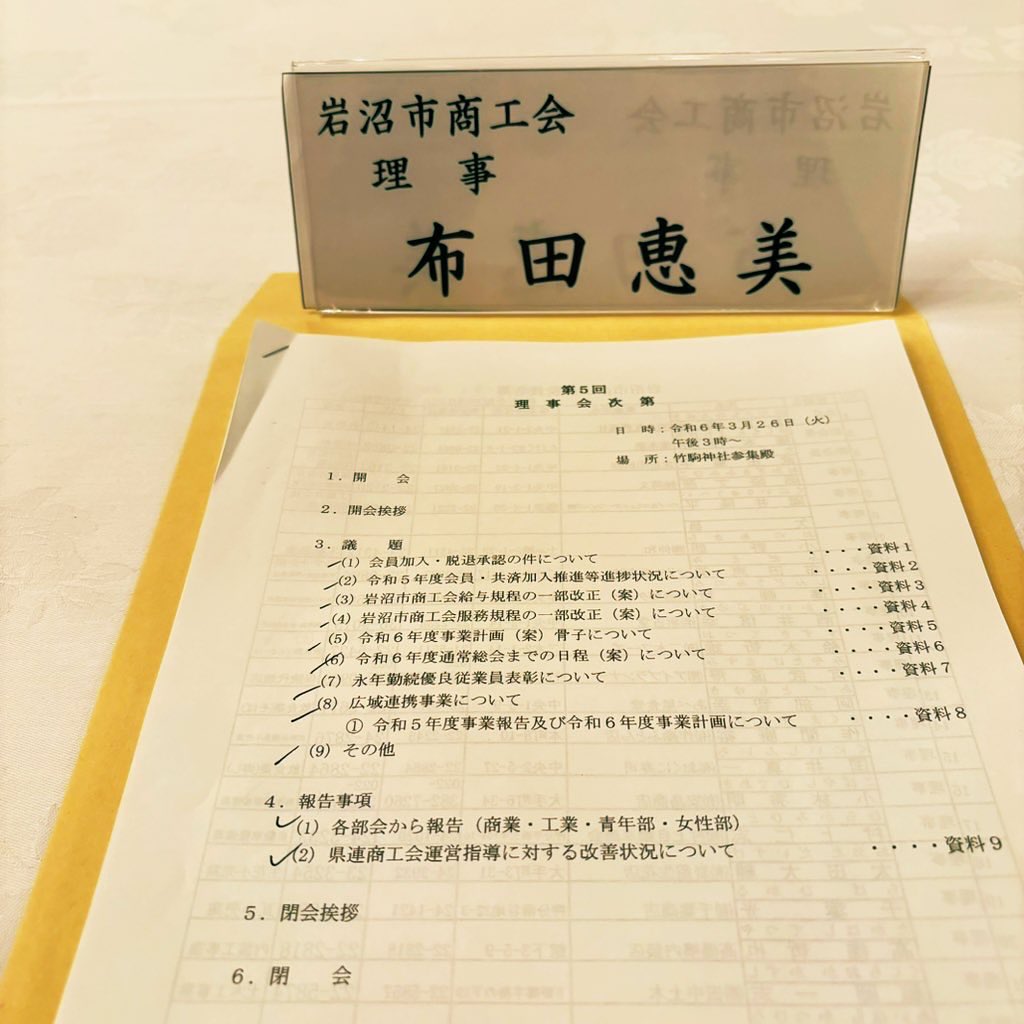 岩沼市商工会
理 事
布 田 恵 美
第５回
理 事 会 次 第
日 時：令和６年３月２６日（火）
午後３時～
場 所：竹駒神社参集殿
１．開 会
２．開会挨拶
３．議 題
(1) 会員加入・脱退承認の件について ・・・・資料１
(2) 令和５年度会員・共済加入推進等進捗状況について ・・・・資料２
(3) 岩沼市商工会給与規程の一部改正（案）について ・・・・資料３
(4) 岩沼市商工会服務規程の一部改正（案）について ・・・・資料４
(5) 令和６年度事業計画（案）骨子について ・・・・資料５
(6) 令和６年度通常総会までの日程（案）について ・・・・資料６
(7) 永年勤続優良従業員表彰について ・・・・資料７
(8) 広域連携事業について
① 令和５年度事業報告及び令和６年度事業計画について ・・・・資料８
(9) その他
４．報告事項
(1) 各部会から報告（商業・工業・青年部・女性部）
(2) 県連商工会運営指導に対する改善状況について ・・・・資料９
５．閉会挨拶
６．閉 会